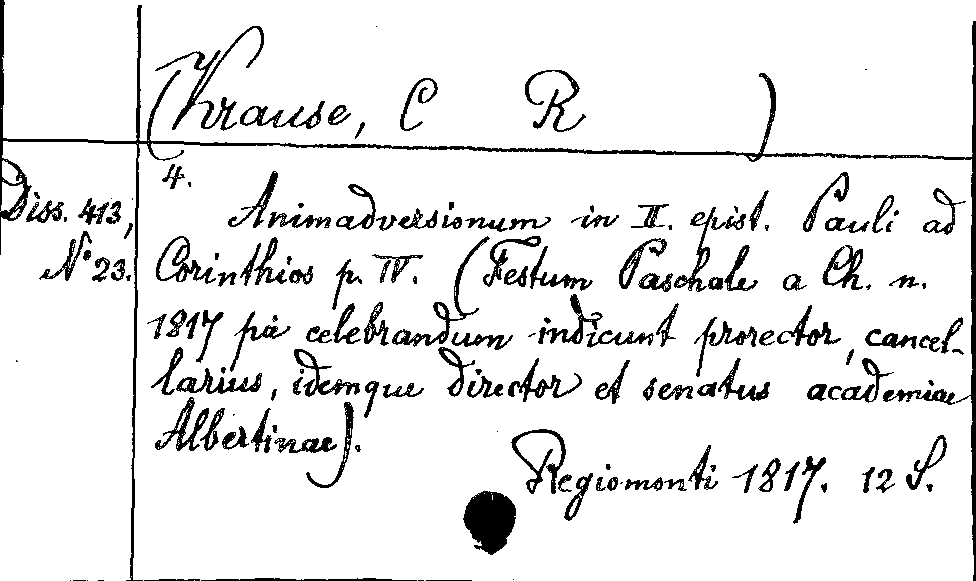 (Krause, C R )
4.
Diss. 413,
N° 23.
Animadversionum in II. epist. Pauli ad
Corinthios p. IV. (Festum Paschale a Ch. n.
1817 pia celebrandum indicunt prorector, cancel-
larius, idemque director et senatus academiae
Albertinae).
Regiomonti 1817. 12 S.